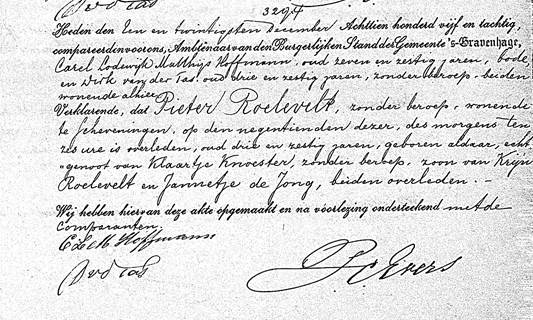 3294
Heden den Een en twintigsten December Achttien honderd vijf en tachtig,
compareerden voor ons, Ambtenaar van den Burgerlijken Stand der Gemeente 's-Gravenhage,
Carel Lodewijk Matthijs Hoffmann, oud zeven en zestig jaren, bode
en Dirk van der Tas, oud drie en zestig jaren, zonder beroep, beiden
wonende alhier
Verklarende, dat Pieter Roelevelt, zonder beroep, wonende
te Scheveningen, op den negentienden dezer, des morgens ten
zes ure is overleden, oud drie en zestig jaren, geboren aldaar, echt-
genoot van Klaartje Knoester, zonder beroep, zoon van Krijn
Roelevelt en Jannetje de Jong, beiden overleden. -
Wij hebben hiervan deze akte opgemaakt en na voorlezing onderteekend met de
Comparanten.
C L M Hoffmann
D v d Tas
P. C. Evers